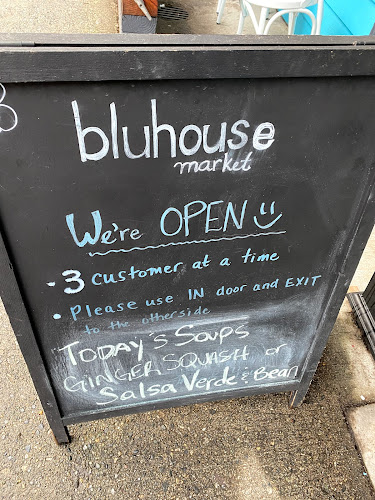 bluhouse
market
We're OPEN
- 3 customer at a time
• Please use IN door and EXIT
to the otherside
TODAY'S SOUPS
GINGER SQUASH or
Salsa Verde & Bean